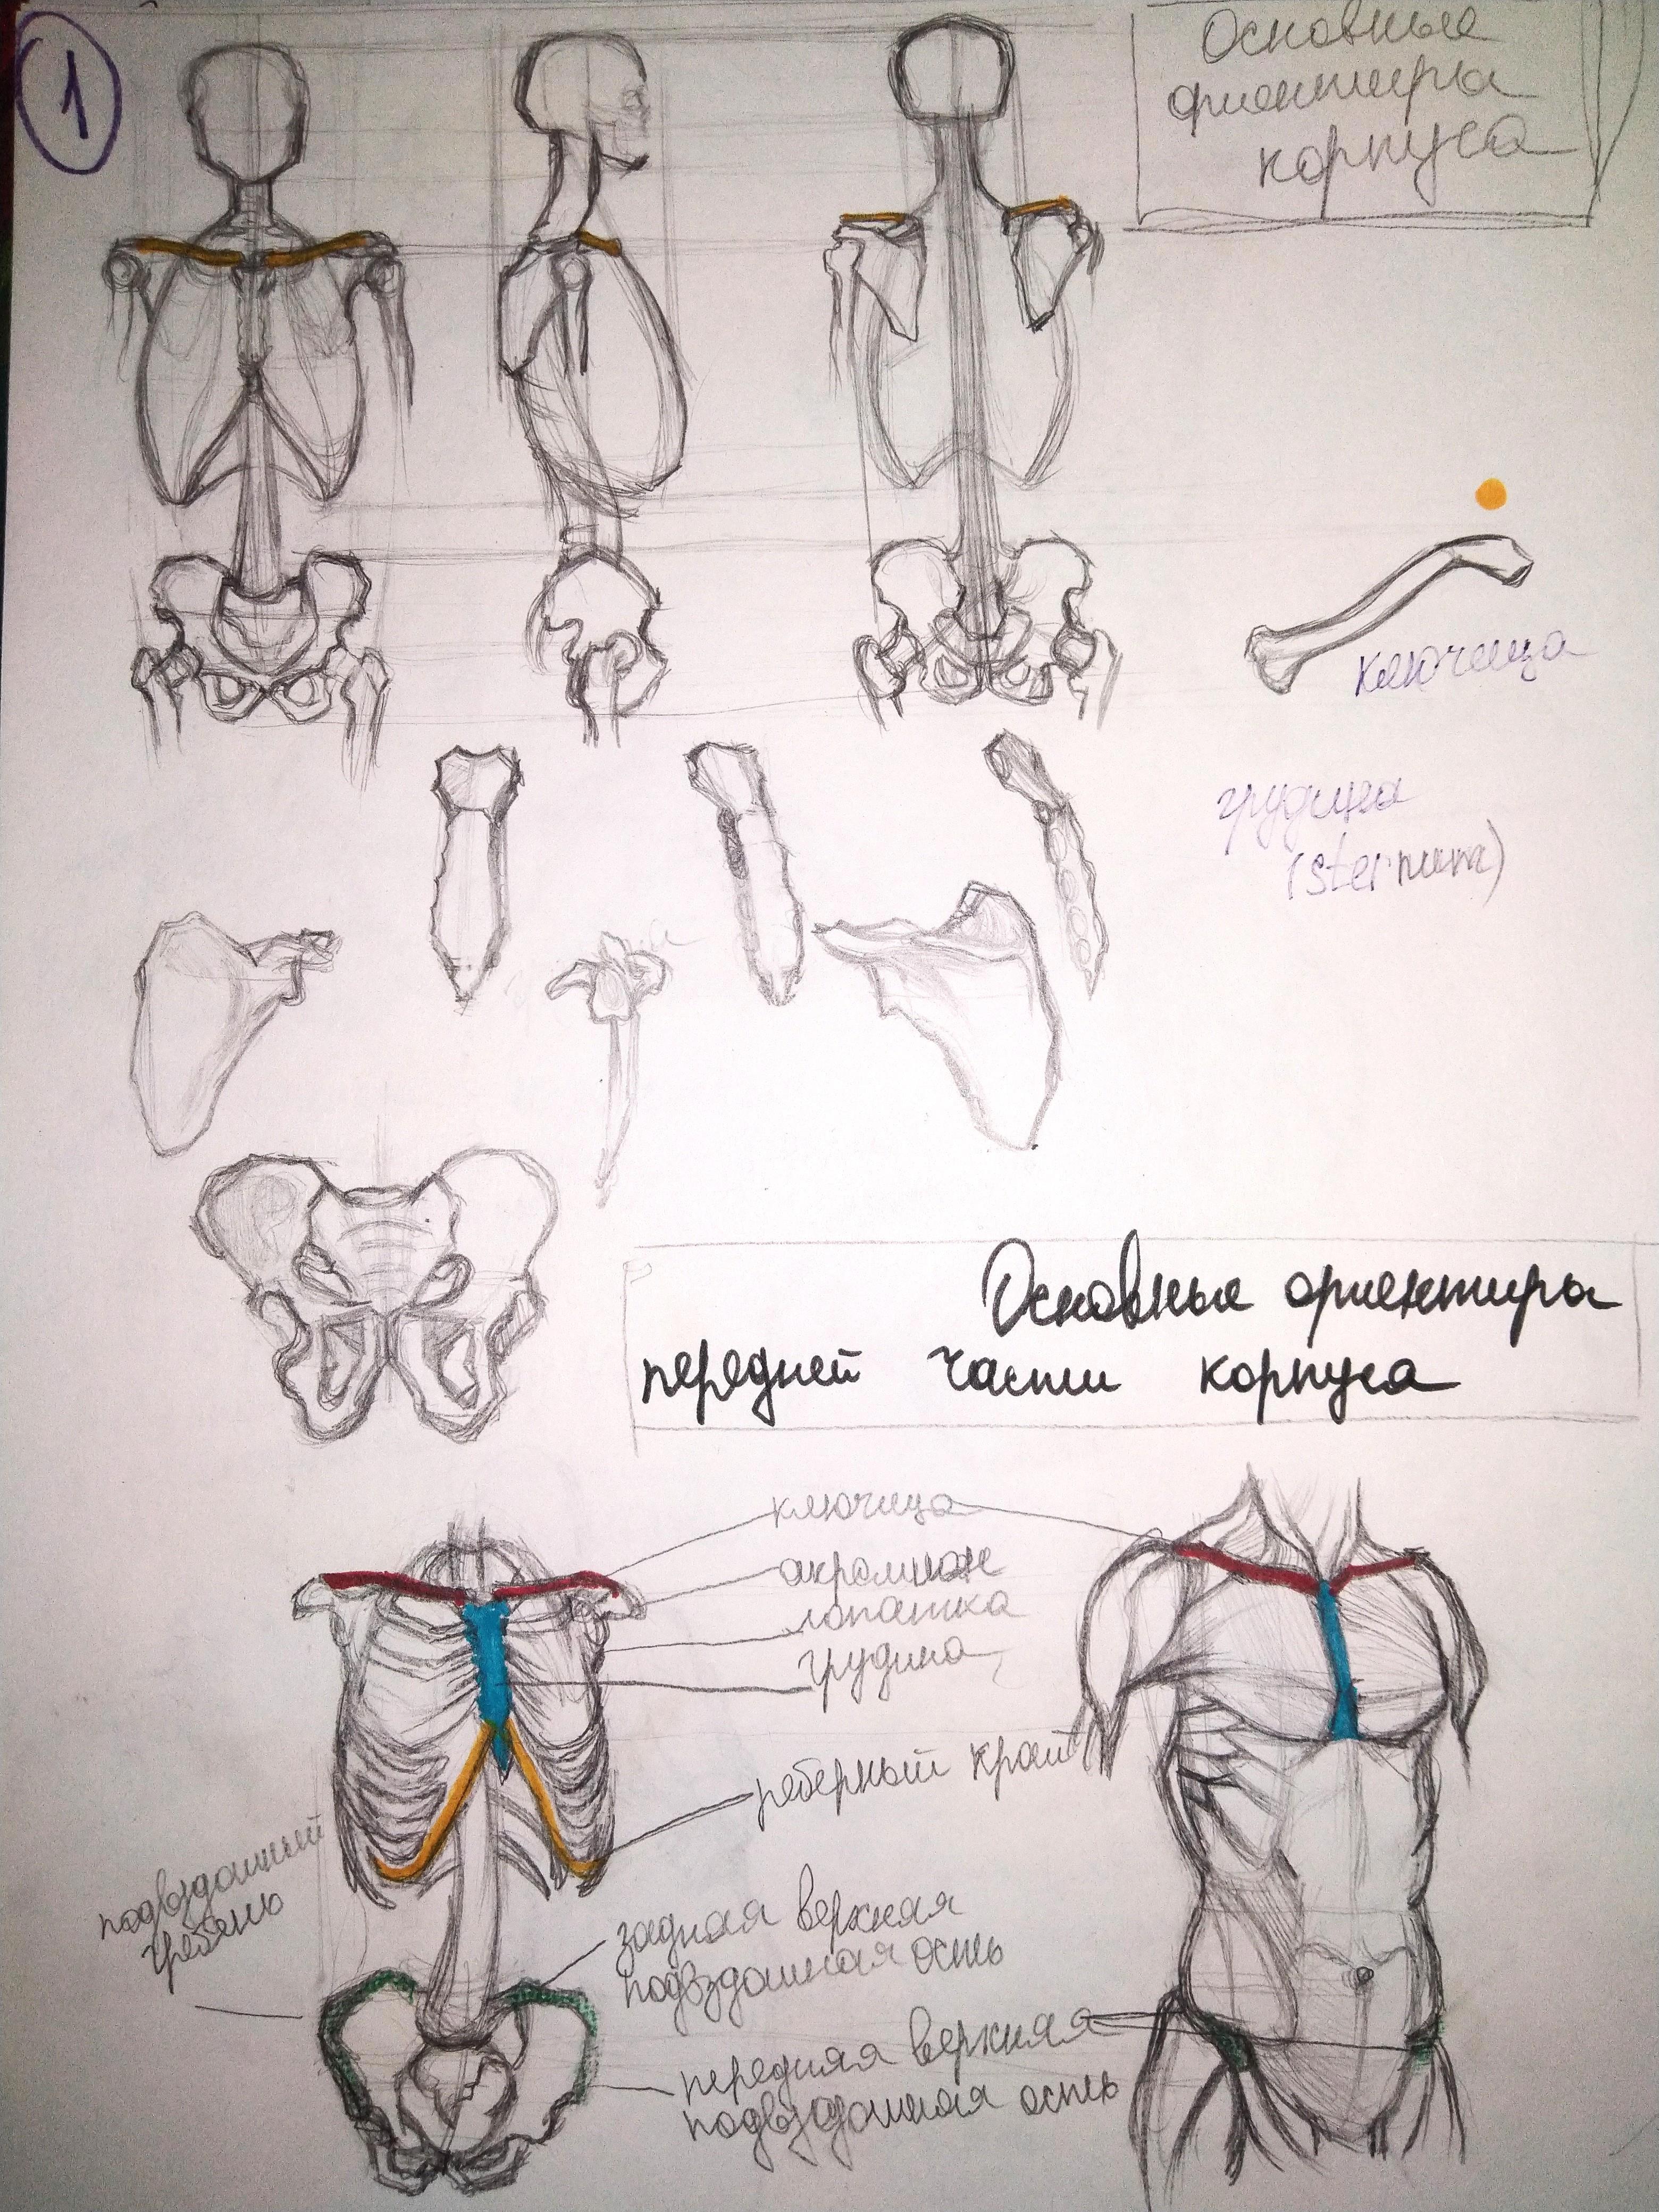 1
Основные
ориентиры
корпуса
ключица
грудина
(sternum)
Основные ориентиры
передней части корпуса
ключица
акромион
лопатка
грудина
реберный край
подвздошный
гребень
задняя верхняя
подвздошная ость
передняя верхняя
подвздошная ость